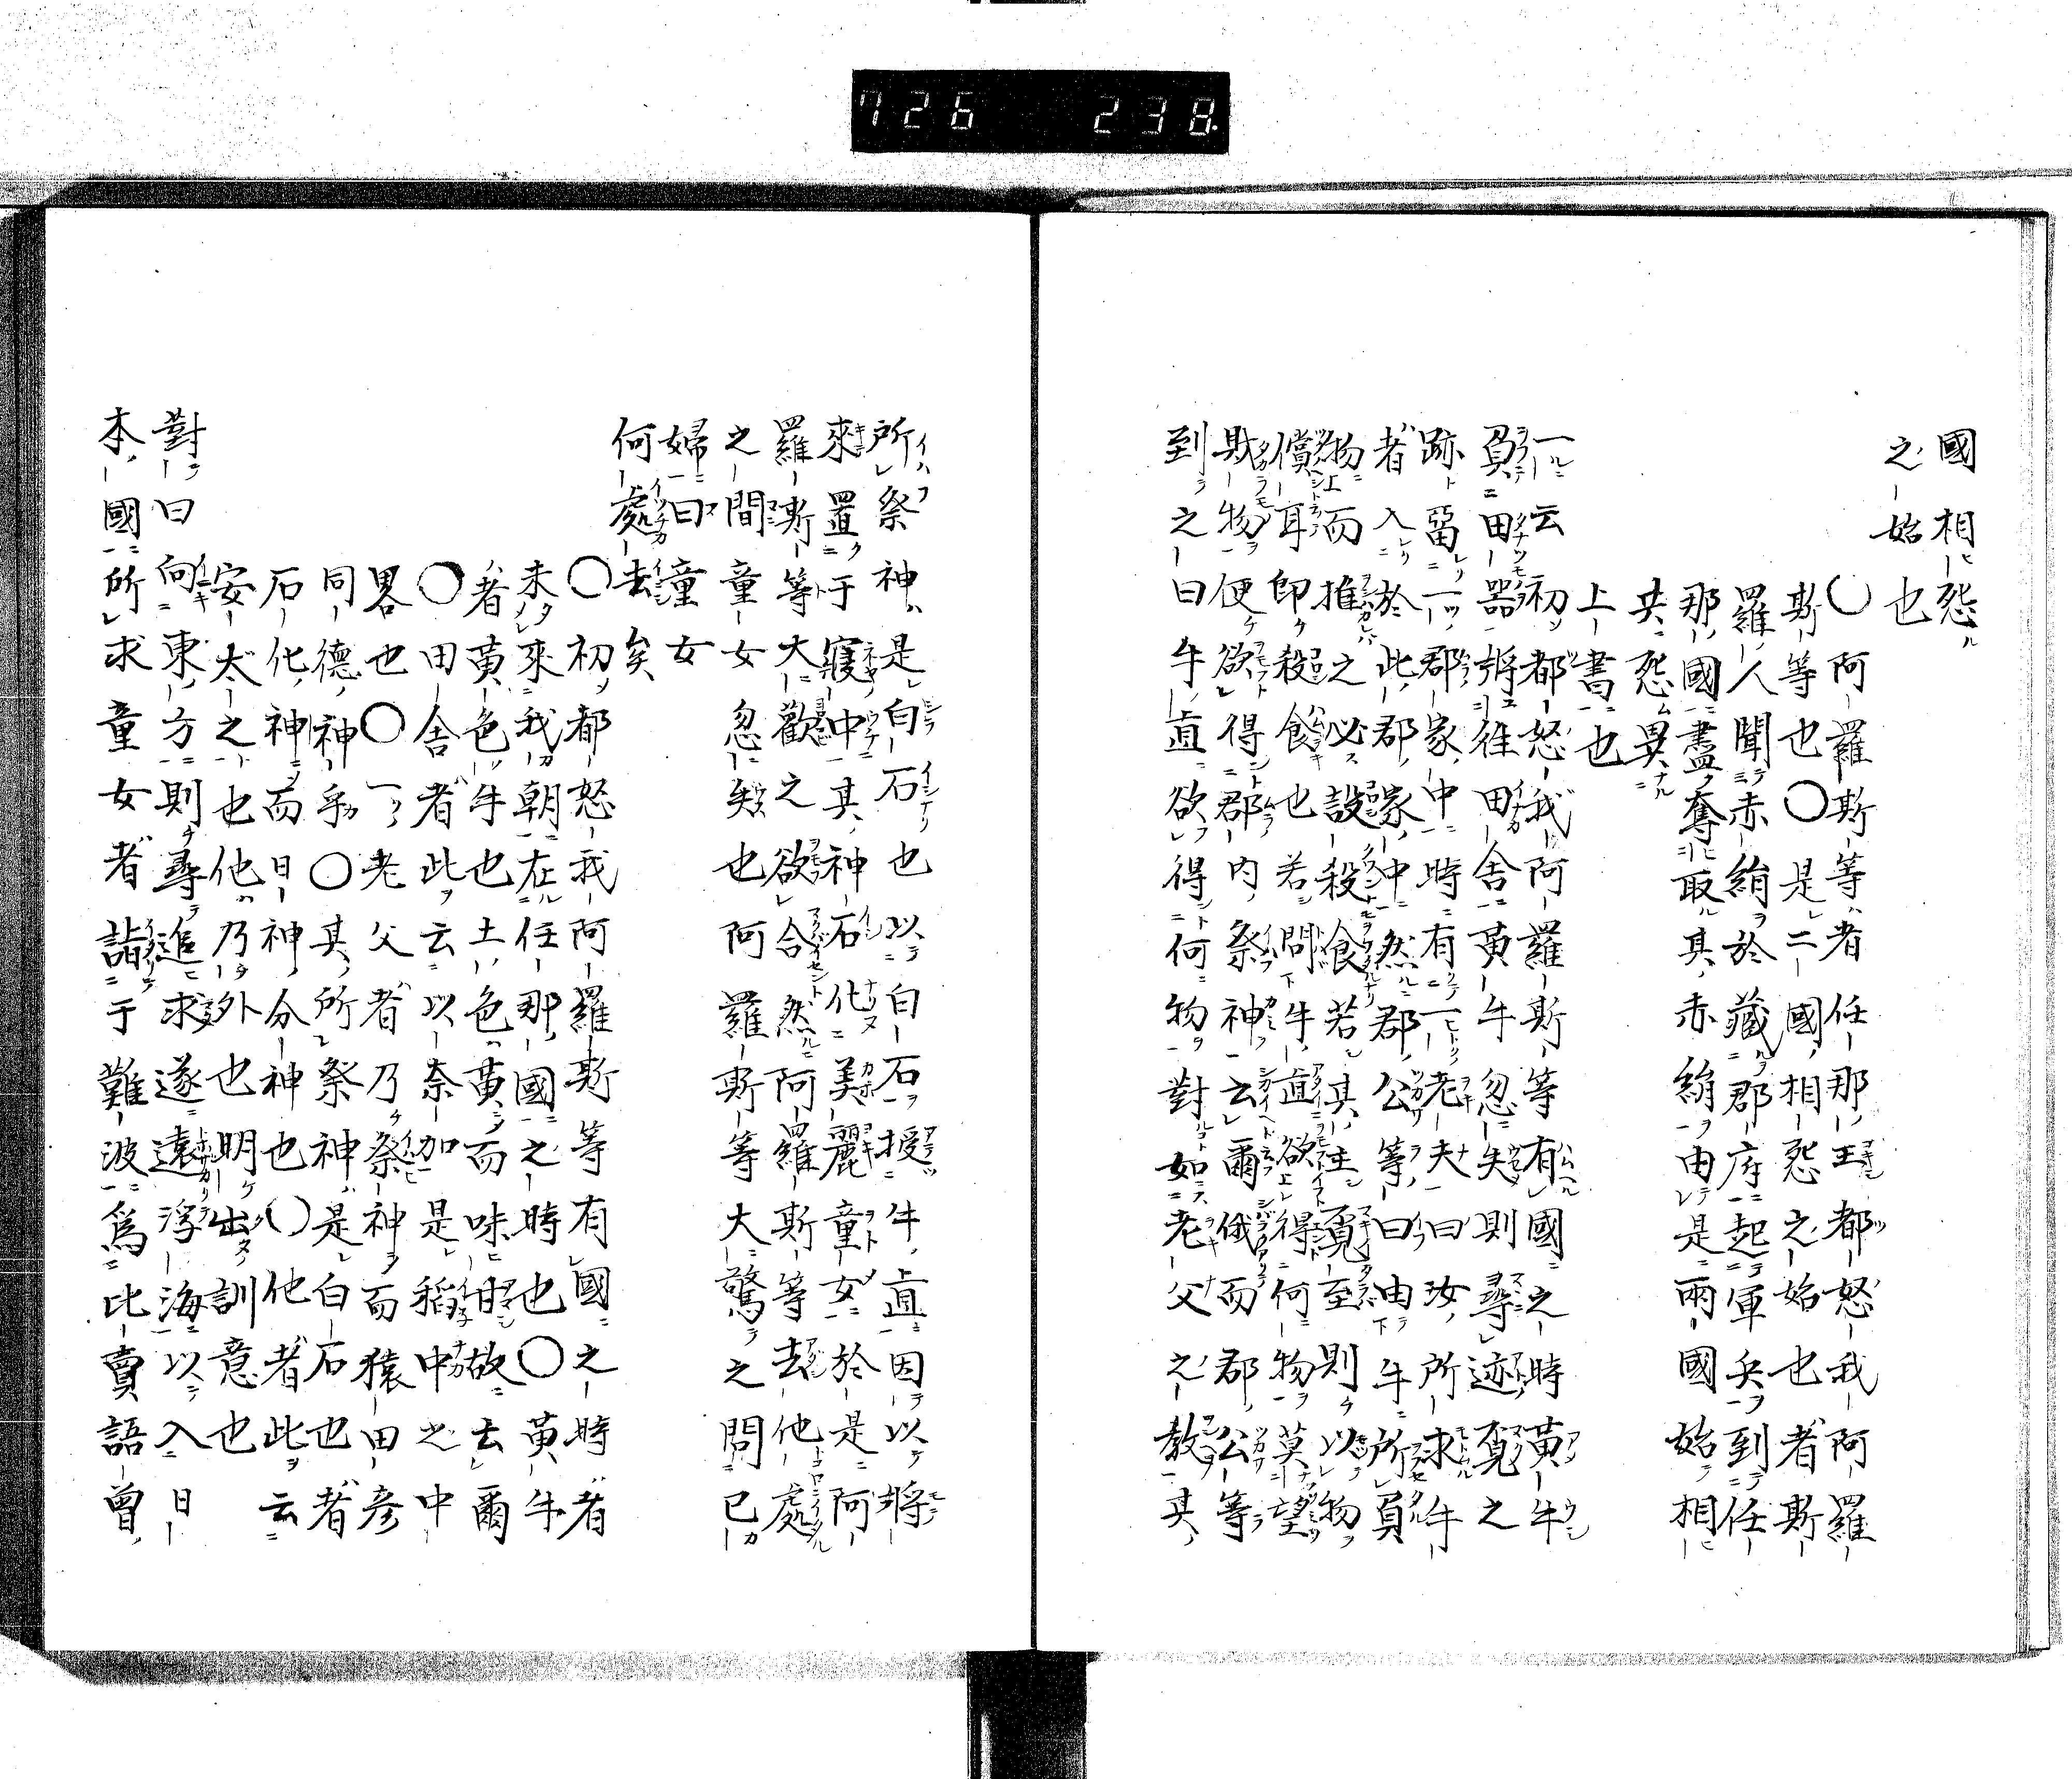 726 238
國相怨
之始也
○阿羅斯等者任那王都怒我阿羅
斯等也○是二國相怨之始也者斯
羅人聞赤絹於藏郡府起軍兵到任
那國盡奪取其赤絹由是兩國始相
共怨異
上書也
一云初都怒我阿羅斯等有國之時黃牛
負田器將往田舍黃牛忽失則尋迹覓之
跡留一郡家中時有一老夫曰汝所求牛
者入於此郡家中然郡公等曰由牛所負
物而推之必設殺食若其主覓至則以物
償耳即殺食也若問牛直欲得何物莫望
財物便欲得郡內祭神云爾俄而郡公等
到之曰牛直欲得何物對如老父之教其
所祭神是白石也以白石授牛直因以將
來置于寢中其神石化美麗童女於是阿
羅斯等大歡之欲合然阿羅斯等去他處
之間童女忽失也阿羅斯等大驚之問己
婦曰童女
何處去矣
○初都怒我阿羅斯等有國之時者
未來我朝在任那國之時也○黃牛
者黃色牛也土色黃而味甘故去爾
○田舍者此云以奈加是稻中之中
畧也○一老父者乃祭神而猿田彦
同德神乎○其所祭神是白石也者
石化神而日神分神也○他者此云
安太之也他乃外也明出訓意也
對曰向東方則尋追求遂遠浮海以入日
本國所求童女者詣于難波爲比賣語曾